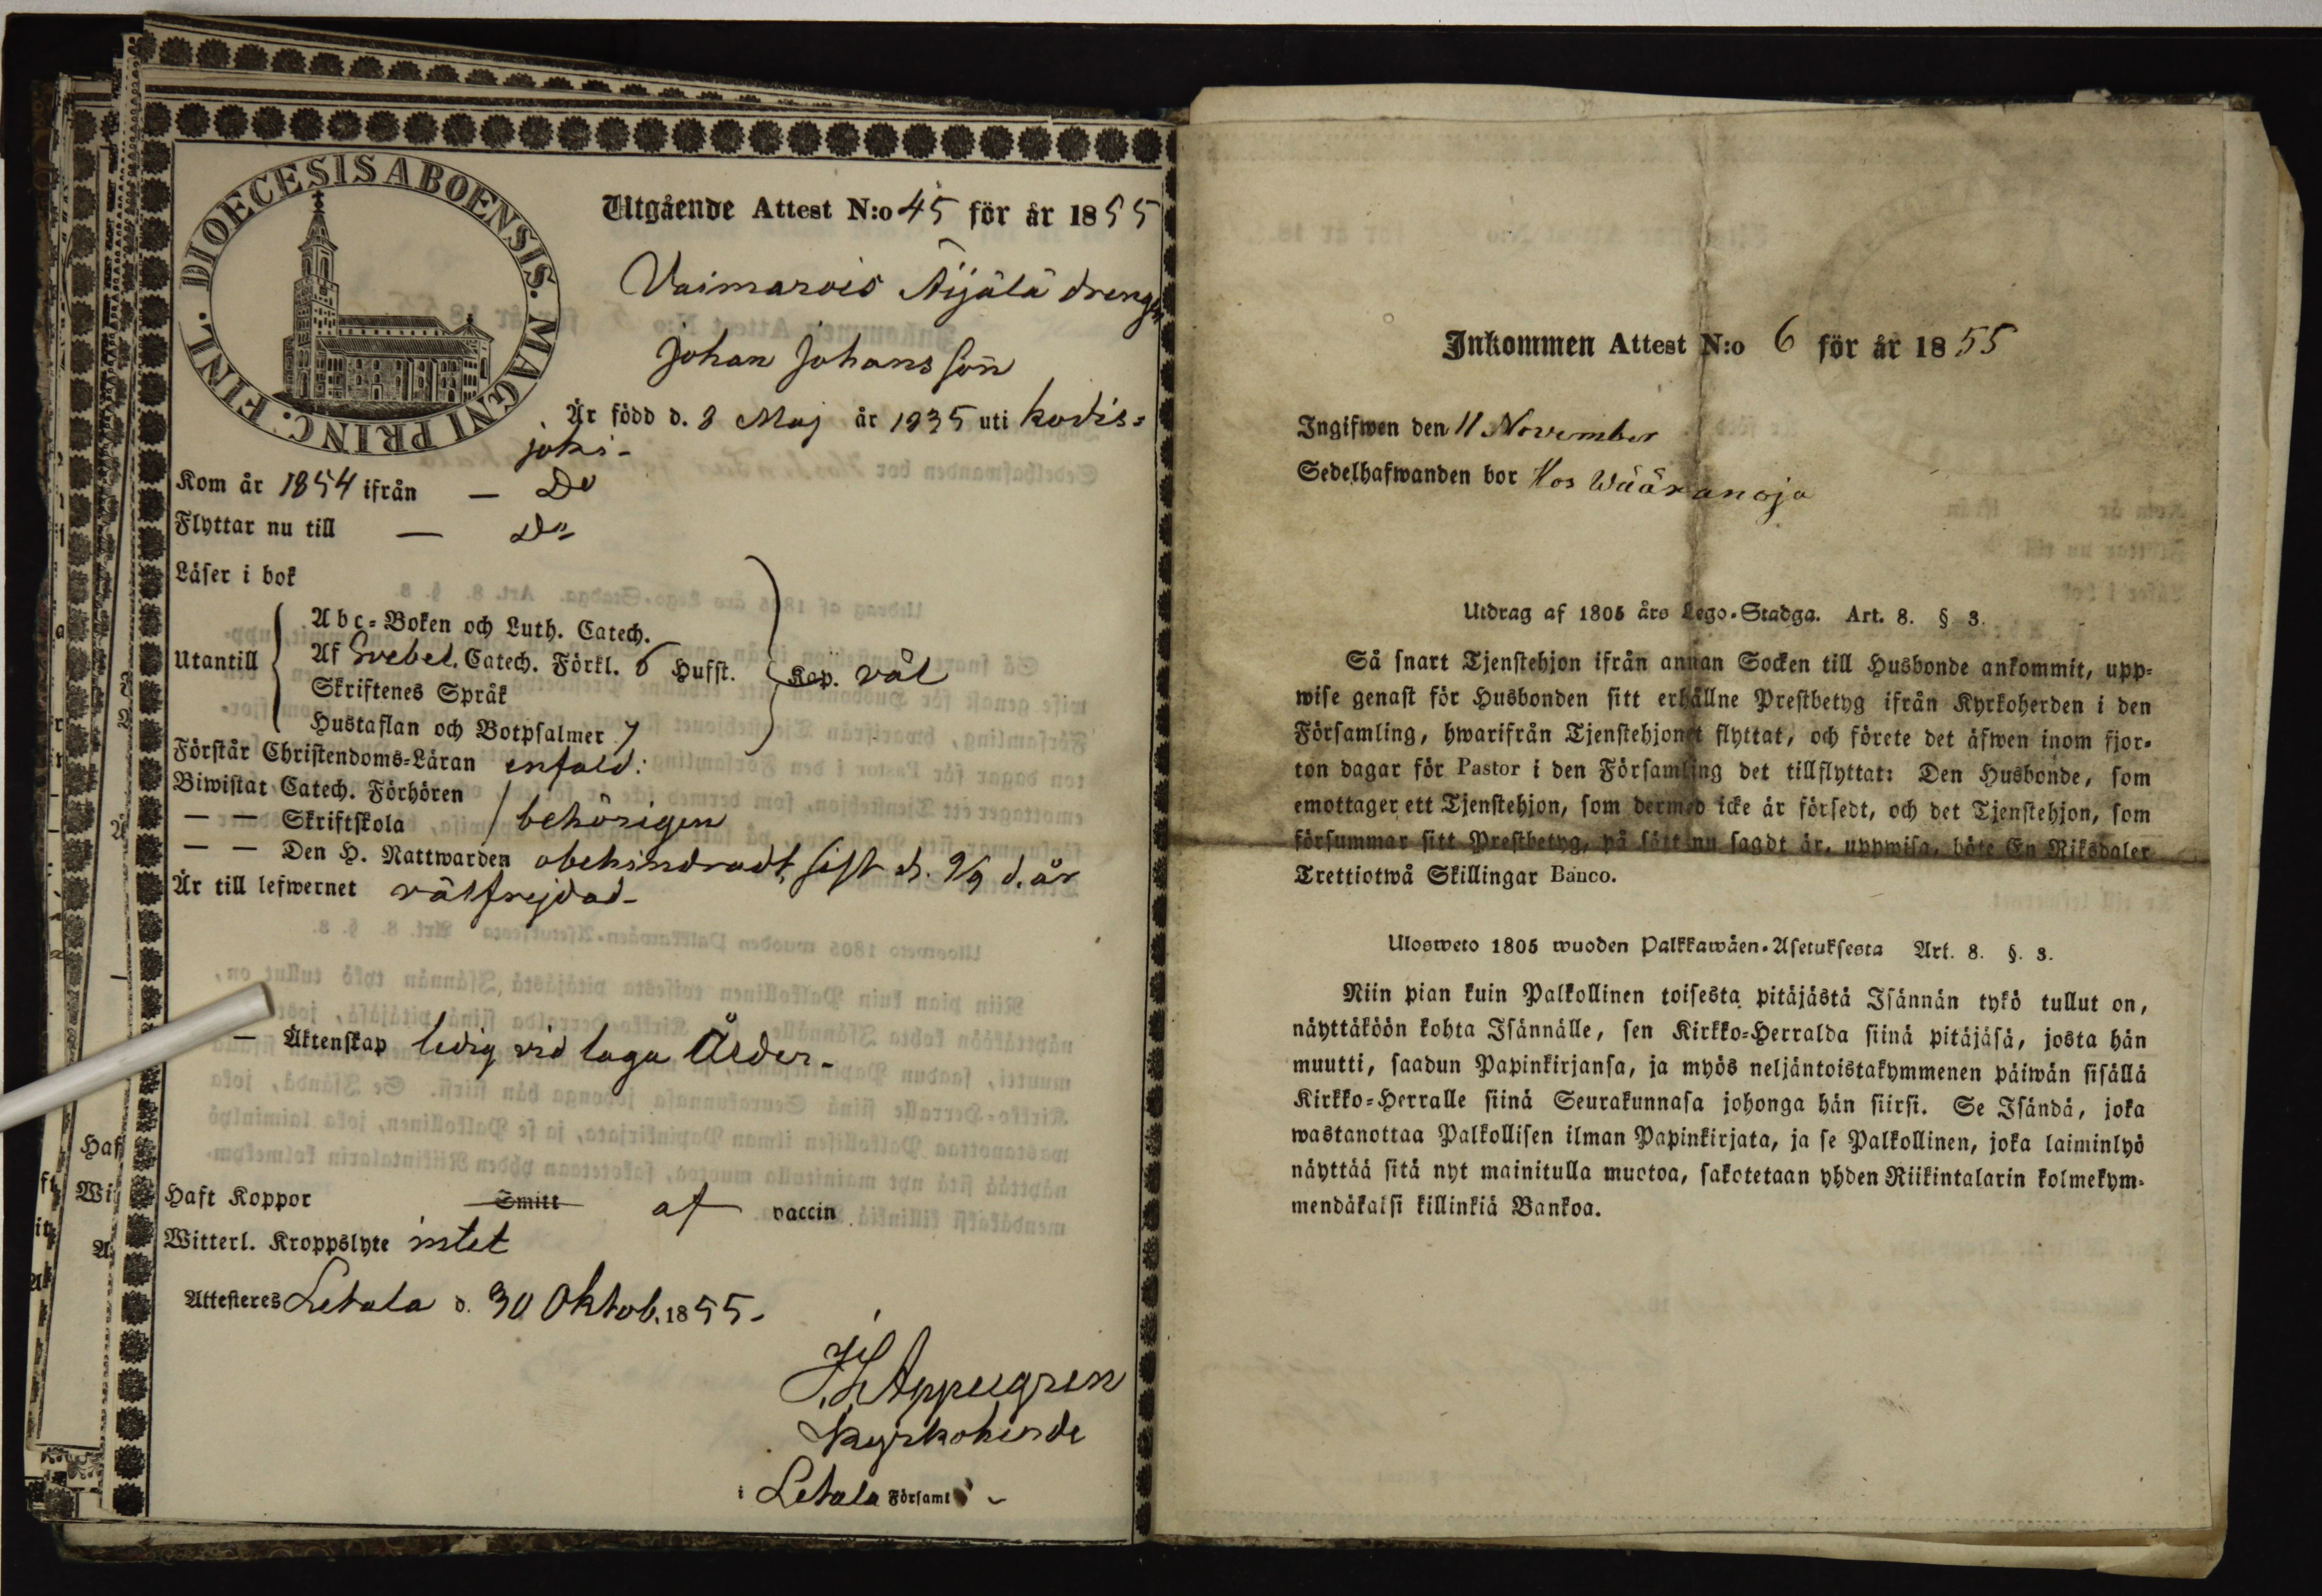 DIOECESIS ABOENSIS. MAGNI PRINC. FINL.
Utgående Attest N:o 45 för år 1855
Vaimarois Äijälä drengen
Johan Johansson
Är född d. 8 Maj år 1835 uti Kodis=
joki-
Kom år 1854 ifrån — Do
Flyttar nu till — Do
Läser i bok
Abc=Boken och Luth. Catech.
Utantill
Af Svebel. Catech. Förkl. 6 Hufst. Kap. väl
Skriftenes Språk
Hustaflan och Botpsalmer 7
Förstår Christendoms=Läran enfald:
Biwistat Catech. Förhören
— — Skriftskola behörigen
— — Den H. Nattwarden obehindradt, sist d. 9/9 d. år
Är till lefwernet välfrejdad-
— Äktenskap ledig vid laga Ålder-
Haft Koppor Smitt af vaccin
Witterl. Kroppslyte intet
Attesteres Letala d. 30 Oktob. 1855-
Appelgren
Kyrkoherde
i Letala Församl
Inkommen Attest N:o 6 för år 1855
Ingifwen den 11 November
Sedelhafwanden bor Hos Wääränoja
Utdrag af 1805 års Lego-Stadga. Art. 8. § 3.
Så snart Tjenstehjon ifrån annan Socken till Husbonde ankommit, upp=
wise genast för Husbonden sitt erhållne Prestbetyg ifrån Kyrkoherden i den
Församling, hwarifrån Tjenstehjonet flyttat, och förete det äfwen inom fjor-
ton dagar för Pastor i den Församling det tillflyttat: Den Husbonde, som
emottager ett Tjenstehjon, som dermed icke är försedt, och det Tjenstehjon, som
försummar sitt Prestbetyg, på sätt nu sagdt är, uppwisa, böte En Riksdaler
Trettiotwå Skillingar Banco.
Ulosweto 1805 wuoden Palkkawäen-Asetuksesta Art. 8. §. 3.
Niin pian kuin Palkollinen toisesta pitäjästä Isännän tykö tullut on,
näyttäköön kohta Isännälle, sen Kirkko=Herralda siinä pitäjäsä, josta hän
muutti, saadun Papinkirjansa, ja myös neljäntoistakymmenen päiwän sisällä
Kirkko=Herralle siinä Seurakunnasa johonga hän siirsi. Se Isändä, joka
wastanottaa Palkollisen ilman Papinkirjata, ja se Palkollinen, joka laiminlyö
näyttää sitä nyt mainitulla muotoa, sakotetaan yhden Riikintalarin kolmekym-
mendäkaksi killinkiä Bankoa.